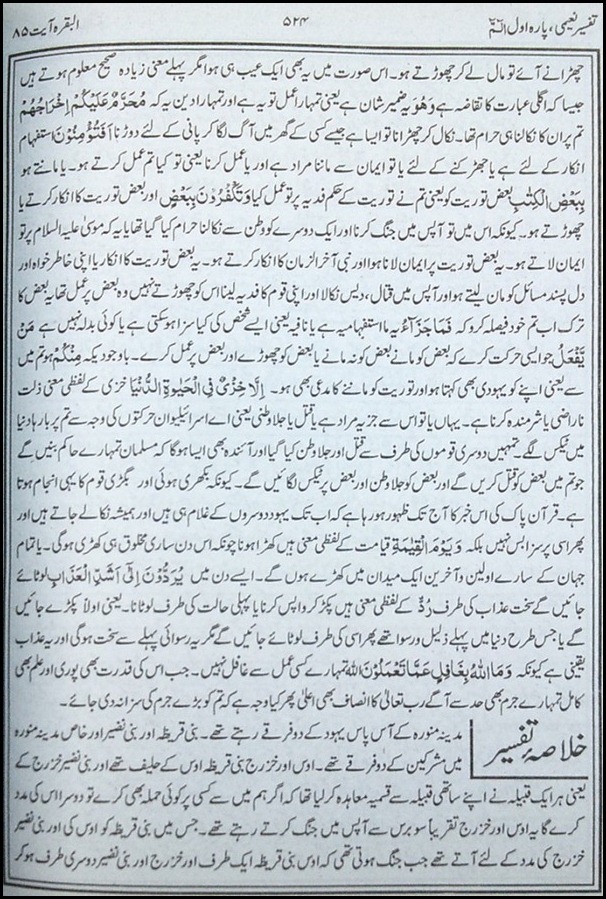 تفسیر نعیمی، پارہ اول الٓمّٓ ۵۲۴ البقرہ آیت ۸۵
چھڑانے آئے تو مال لے کر چھوڑتے ہو۔ اس صورت میں یہ بھی ایک عیب ہی ہوا مگر پہلے معنی زیادہ صحیح معلوم ہوتے ہیں
جیسا کہ اگلی عبارت کا تقاضہ ہے وَهُوَ یہ ضمیر شان ہے یعنی تمہارا عمل تو یہ ہے اور تمہارا دین یہ کہ مُحَرَّمٌ عَلَيْكُمْ اِخْرَاجُهُمْ
تم پر ان کا نکالنا ہی حرام تھا۔ نکال کر چھڑانا تو ایسا ہے جیسے کسی کے گھر میں آگ لگا کر پانی کے لئے دوڑنا اَفَتُؤْمِنُوْنَ استفہام
انکار کے لئے ہے یا جھڑکنے کے لئے یا تو ایمان سے ماننا مراد ہے اور یا عمل کرنا یعنی تو کیا تم عمل کرتے ہو۔ یا مانتے ہو
بِبَعْضِ الْكِتٰبِ بعض توریت کو یعنی تم نے توریت کے حکم فدیہ پر تو عمل کیا وَتَكْفُرُوْنَ بِبَعْضٍ اور بعض توریت کا انکار کرتے یا
چھوڑتے ہو۔ کیونکہ اس میں تو آپس میں جنگ کرنا اور ایک دوسرے کو وطن سے نکالنا حرام کیا گیا تھا یا یہ کہ موسیٰ علیہ السلام پر تو
ایمان لاتے ہو۔ یہ بعض توریت پر ایمان لانا ہوا اور نبی آخر الزمان کا انکار کرتے ہو۔ یہ بعض توریت کا انکار یا اپنی خاطر خواہ اور
دل پسند مسائل کو مان لیتے ہو اور آپس میں قتال، دیس نکالا اور اپنی قوم کا فدیہ لینا اس کو چھوڑتے نہیں وہ بعض پر عمل تھا یہ بعض کا
ترک اب تم خود فیصلہ کرو کہ فَمَا جَزَآءُ یہ ما استفہامیہ ہے یا نافیہ یعنی ایسے شخص کی کیا سزا ہو سکتی ہے یا کوئی بدلہ نہیں ہے مَنْ
يَّفْعَلُ جو ایسی حرکت کرے کہ بعض کو مانے بعض کو نہ مانے یا بعض کو چھوڑے اور بعض پر عمل کرے۔ باوجودیکہ مِنْكُمْ ہو تم میں
سے یعنی اپنے کو یہودی بھی کہتا ہو اور توریت کو ماننے کا مدعی بھی ہو۔ اِلَّا خِزْيٌ فِي الْحَيٰوةِ الدُّنْيَا خزی کے لفظی معنی ذلت
ناراضی یا شرمندہ کرنا ہے۔ یہاں یا تو اس سے جزیہ مراد ہے یا قتل یا جلا وطنی یعنی اے اسرائیلیو ان حرکتوں کی وجہ سے تم پر بارہا دنیا
میں ٹیکس لگے۔ تمہیں دوسری قوموں کی طرف سے قتل اور جلا وطن کیا گیا اور آئندہ بھی ایسا ہو گا کہ مسلمان تمہارے حاکم بنیں گے
جو تم میں بعض کو قتل کریں گے اور بعض کو جلا وطن اور بعض پر ٹیکس لگائیں گے۔ کیونکہ بکھری ہوئی اور بگڑی قوم کا یہی انجام ہوتا
ہے۔ قرآن پاک کی اس خبر کا آج تک ظہور ہو رہا ہے کہ اب تک یہود دوسروں کے غلام ہی ہیں اور ہمیشہ نکالے جاتے ہیں اور
پھر اسی پر سزا بس نہیں بلکہ وَيَوْمَ الْقِيٰمَةِ قیامت کے لفظی معنی ہیں کھڑا ہونا چونکہ اس دن ساری مخلوق ہی کھڑی ہو گی۔ یا تمام
جہان کے سارے اولین و آخرین ایک میدان میں کھڑے ہوں گے۔ ایسے دن میں يُرَدُّوْنَ اِلٰٓى اَشَدِّ الْعَذَابِ لوٹائے
جائیں گے سخت عذاب کی طرف رُدٌّ کے لفظی معنی ہیں پکڑ کر واپس کرنا یا پہلی حالت کی طرف لوٹانا۔ یعنی اولاً پکڑے جائیں
گے یا جس طرح دنیا میں پہلے ذلیل و رسوا تھے پھر اسی کی طرف لوٹائے جائیں گے مگر یہ رسوائی پہلے سے سخت ہو گی اور یہ عذاب
یقینی ہے کیونکہ وَمَا اللهُ بِغَافِلٍ عَمَّا تَعْمَلُوْنَ اللہ تمہارے کسی عمل سے غافل نہیں۔ جب اس کی قدرت بھی پوری اور علم بھی
کامل تمہارے جرم بھی حد سے آگے رب تعالیٰ کا انصاف بھی اعلیٰ پھر کیا وجہ ہے کہ تم کو بڑے جرم کی سزا نہ دی جائے۔
خلاصہ تفسیر
مدینہ منورہ کے آس پاس یہود کے دو فرقے رہتے تھے۔ بنی قریظہ اور بنی نضیر اور خاص مدینہ منورہ
میں مشرکین کے دو فرقے تھے۔ اوس اور خزرج بنی قریظہ اوس کے حلیف تھے اور بنی نضیر خزرج کے
یعنی ہر ایک قبیلہ نے اپنے ساتھی قبیلہ سے قسمیہ معاہدہ کر لیا تھا کہ اگر ہم میں سے کسی پر کوئی حملہ بھی کرے تو دوسرا اس کی مدد
کرے گا یہ اوس اور خزرج تقریباً سو برس سے آپس میں جنگ کرتے رہتے تھے۔ جس میں بنی قریظہ کو اوس کی اور بنی نضیر
خزرج کی مدد کے لئے آتے تھے جب جنگ ہوتی تھی کہ اوس بنی قریظہ ایک طرف اور خزرج اور بنی نضیر دوسری طرف ہو کر